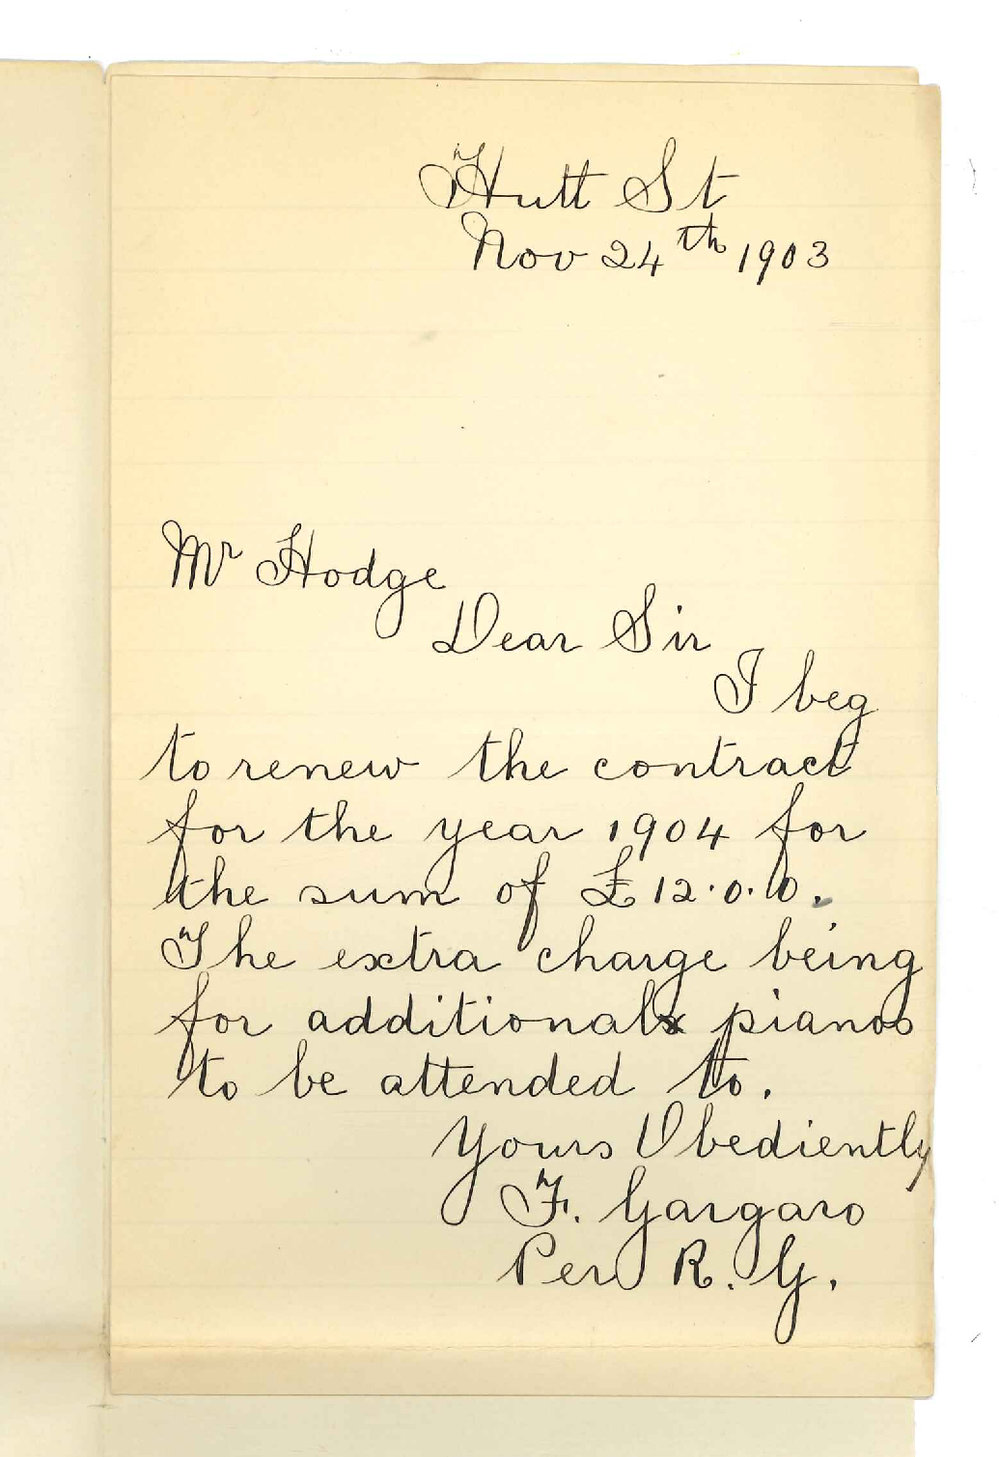 Hutt St
Nov 24th 1903
Mr Hodge
Dear Sir
I beg
to renew the contract
for the year 1904 for
the sum of £12.0.0.
The extra charge being
for additional pianos
to be attended to.
Yours Obediently
F. Gargaro
Per R. G.